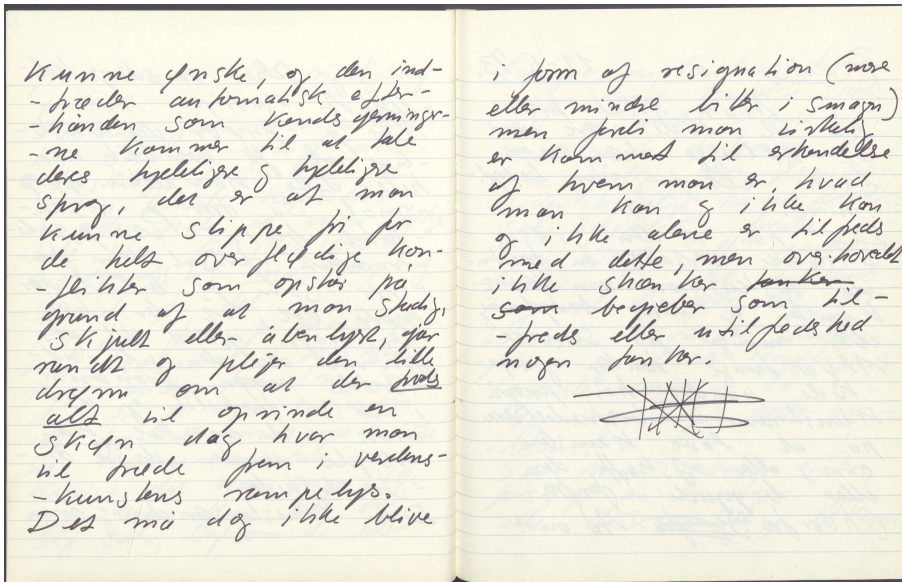 Kunne ønske, og den ind-
-træder automatisk efter-
-hånden som kendsgerninger-
-ne kommer til at tale
deres tydeligere og tydeligere
sprog, det er at man
kunne slippe fri for
de helt overflødige kon-
-flikter som opstår på
grund af at man stadig,
skjult eller åbenlyst, går
rundt og plejer den lille
drøm om at der trods
alt vil oprinde en
skøn dag hvor man
vil træde frem i verdens-
-kunstens rampelys.
Det må dog ikke blive
i form af resignation (mere
eller mindre bitter i smagen)
men fordi man virkelig
er kommet til erkendelse
af hvem man er, hvad
man kan og ikke kan
og ikke alene er tilfreds
med dette, men overhovedet
ikke skænker tanker
som begreber som til-
-freds eller utilfredshed
nogen tanker.